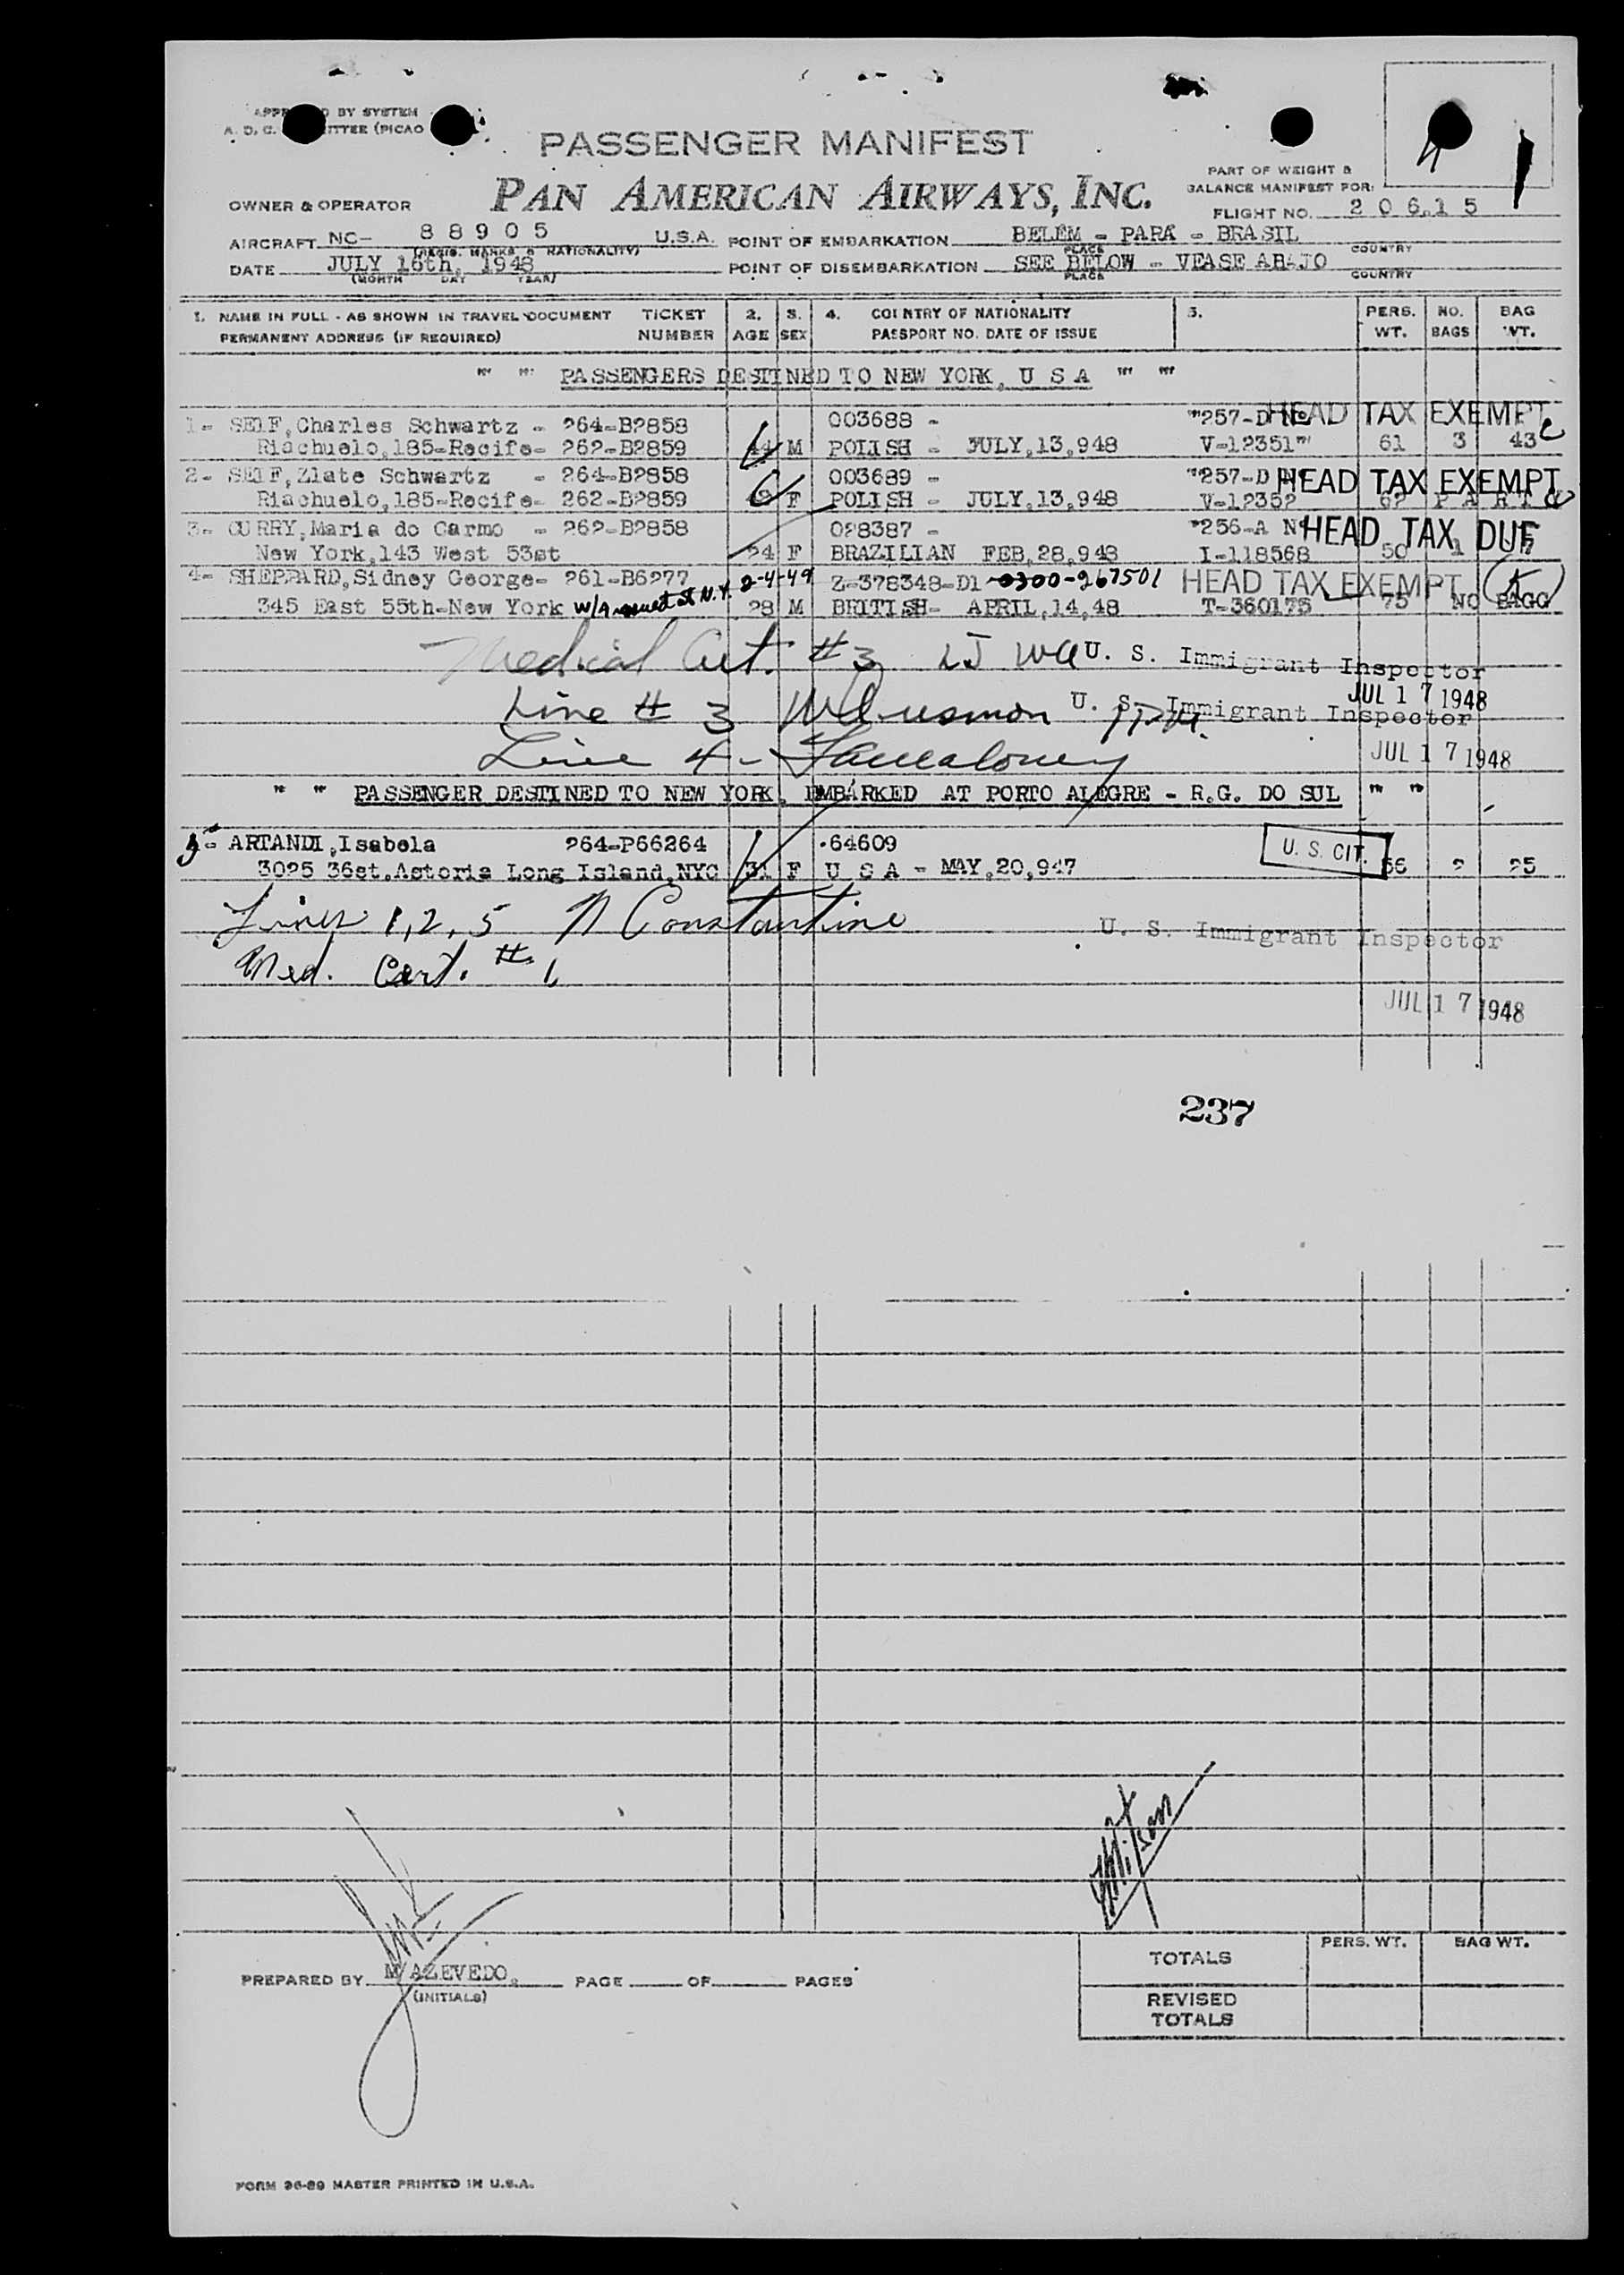 BY SYSTEM
A. D. C. (PICAO
PASSENGER MANIFEST
PAN AMERICAN AIRWAYS, INC.
PART OF WEIGHT &
BALANCE MANIFEST FOR:
OWNER & OPERATOR
FLIGHT NO. 20615
AIRCRAFT NC- 88905 U.S.A. POINT OF EMBARKATION BELEM - PARA - BRASIL
(REGIS. MARKS & NATIONALITY) PLACE COUNTRY
DATE JULY 16th, 1948 POINT OF DISEMBARKATION SEE BELOW - VEASE ABAJO
(MONTH DAY YEAR) PLACE COUNTRY
1. NAME IN FULL - AS SHOWN IN TRAVEL DOCUMENT TICKET 2. 3. 4. COUNTRY OF NATIONALITY 5. PERS. NO. BAG
PERMANENT ADDRESS (IF REQUIRED) NUMBER AGE SEX PASSPORT NO. DATE OF ISSUE WT. BAGS WT.
" " PASSENGERS DESTINED TO NEW YORK, U S A " "
1- SELF, Charles Schwartz - 264-B2858 003688 - "257-D HEAD TAX EXEMPT
Riachuelo,185-Recife- 262-B2859 44 M POLISH - JULY,13,948 V-12351" 61 3 43
2- SELF, Zlate Schwartz - 264-B2858 003689 - "257-D HEAD TAX EXEMPT
Riachuelo,185-Recife- 262-B2859 F POLISH - JULY,13,948 V-12352 62 P A R T
3- CURRY, Maria do Carmo - 262-B2858 028387 - "256-A HEAD TAX DUE
New York,143 West 53st 24 F BRAZILIAN FEB,28,948 I-118568 50 1
4- SHEPPARD, Sidney George- 261-B6277 2-4-49 Z-378348-D1 0300-267501 HEAD TAX EXEMPT
345 East 55th-New York W/A at N.Y. 28 M BRITISH- APRIL,14,48 T-360175 75 NO BAGG
Medical Cert. #3 U. S. Immigrant Inspector
JUL 17 1948
Line # 3 U. S. Immigrant Inspector
Line 4 - JUL 17 1948
" " PASSENGER DESTINED TO NEW YORK, EMBARKED AT PORTO ALEGRE - R.G. DO SUL " "
5- ARTANDI, Isabela 264-P66264 64609 U. S. CIT.
3025 36st. Astoria Long Island, NYC 31 F U S A - MAY,20,947 56 2 25
Lines 1, 2, 5 N Constantine U. S. Immigrant Inspector
Med. Cert. # 1
JUL 17 1948
237
PERS. WT. BAG WT.
TOTALS
PREPARED BY M AZEVEDO. PAGE OF PAGES
(INITIALS)
REVISED
TOTALS
FORM 96-89 MASTER PRINTED IN U.S.A.